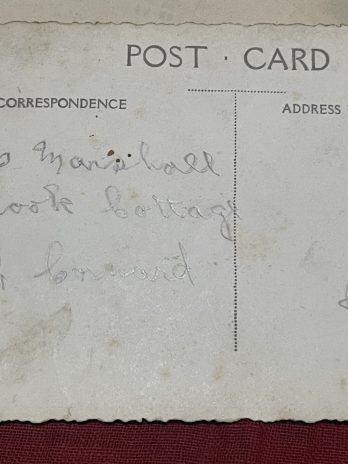 POST · CARD
CORRESPONDENCE
ADDRESS
Marshall
ook Cottage